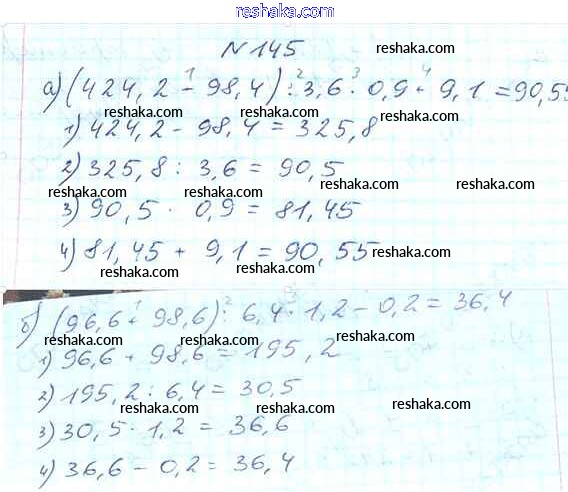 www.reshaka.com
N 145
reshaka.com
а) (424,2 - 98,4) : 3,6 · 0,9 + 9,1 = 90,55
reshaka.com reshaka.com reshaka.com
1) 424,2 - 98,4 = 325,8
2) 325,8 : 3,6 = 90,5
reshaka.com reshaka.com reshaka.com
3) 90,5 · 0,9 = 81,45
4) 81,45 + 9,1 = 90,55
reshaka.com reshaka.com
б) (96,6 + 98,6) : 6,4 · 1,2 - 0,2 = 36,4
reshaka.com reshaka.com
1) 96,6 + 98,6 = 195,2
2) 195,2 : 6,4 = 30,5
reshaka.com reshaka.com reshaka.com
3) 30,5 · 1,2 = 36,6
reshaka.com reshaka.com
4) 36,6 - 0,2 = 36,4